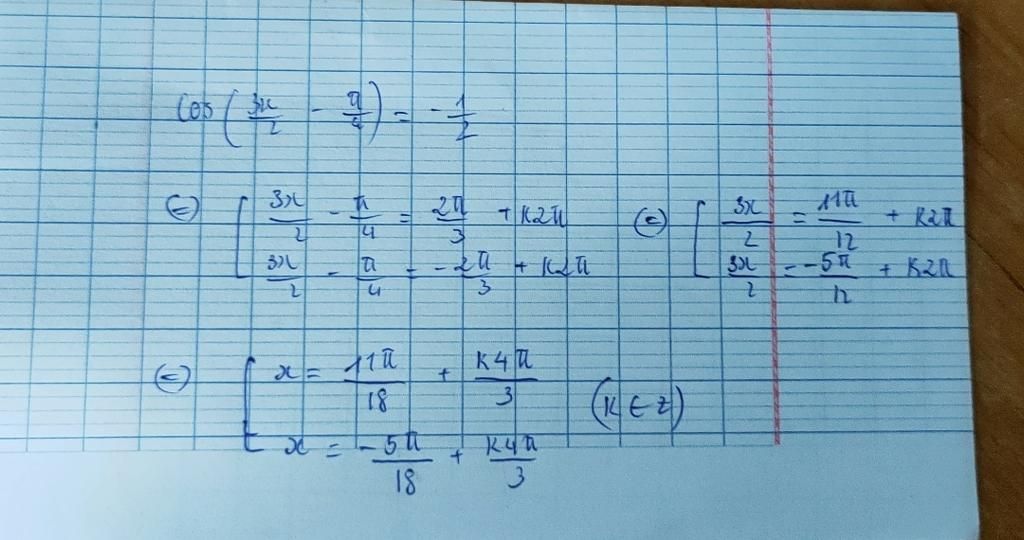 cos(3x/2 - π/4) = -1/2
⇔ [ 3x/2 - π/4 = 2π/3 + k2π
3x/2 - π/4 = -2π/3 + k2π
⇔ [ 3x/2 = 11π/12 + k2π
3x/2 = -5π/12 + k2π
⇔ [ x = 11π/18 + k4π/3
x = -5π/18 + k4π/3
(k ∈ z)